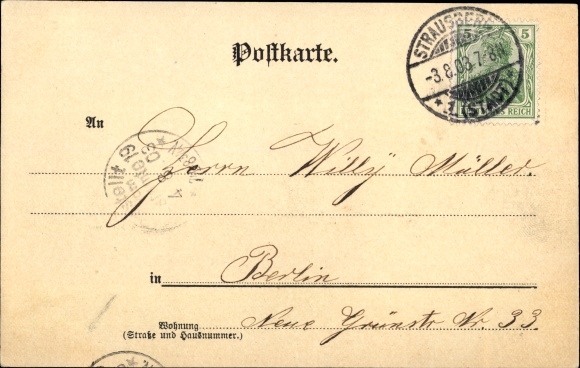 Postkarte.
STRAUSBERG
5
-3.8.03.7-8N
* 1 (STADT)
REICH
An
Herrn Willy Müller.
in Berlin
Wohnung Neue Grünstr Nr. 33.
(Straße und Hausnummer.)